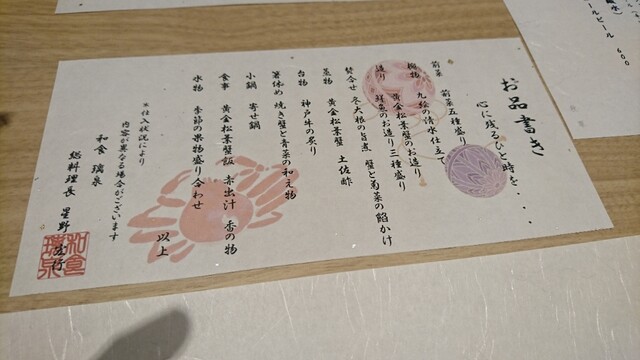 お品書き
心に残るひと時を・・・・
前菜 前菜五種盛り
椀物 九絵の清水仕立て
造り 黄金松葉蟹のお造り
鮮魚のお造り三種盛り
焚合せ 冬大根の旨煮 蟹と菊菜の餡かけ
蒸物 黄金松葉蟹 土佐酢
台物 神戸牛の炙り
箸休め 焼き蟹と青菜の和え物
小鍋 寄せ鍋
食事 黄金松葉蟹飯 赤出汁 香の物
水物 季節の果物盛り合わせ
以上
※仕入状況により
内容が異なる場合がございます
和食 璃泉
総料理長 星野
ールビール 600